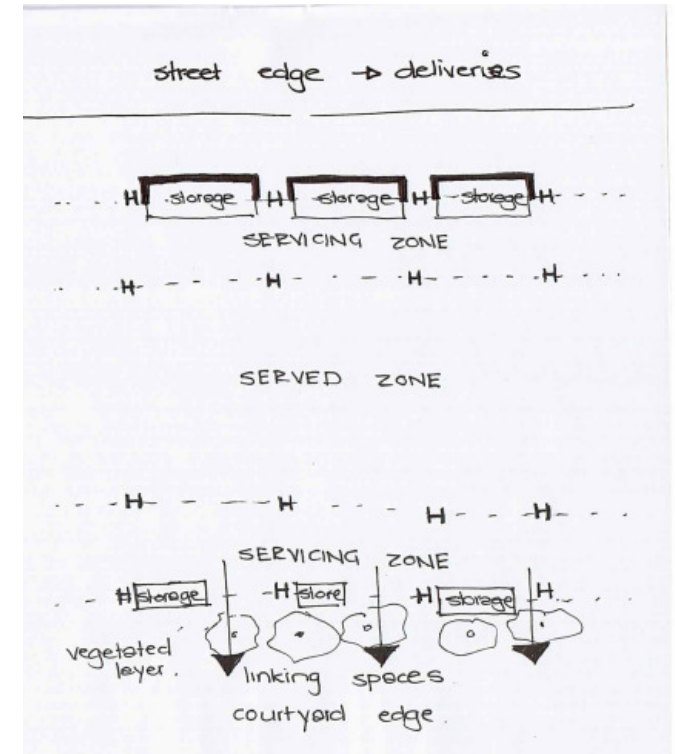 street edge → deliveries
H storage H storage H storage H
SERVICING ZONE
H H H H
SERVED ZONE
H H H H
SERVICING ZONE
H storage H store H storage H
vegetated
layer.
linking spaces
courtyard edge.